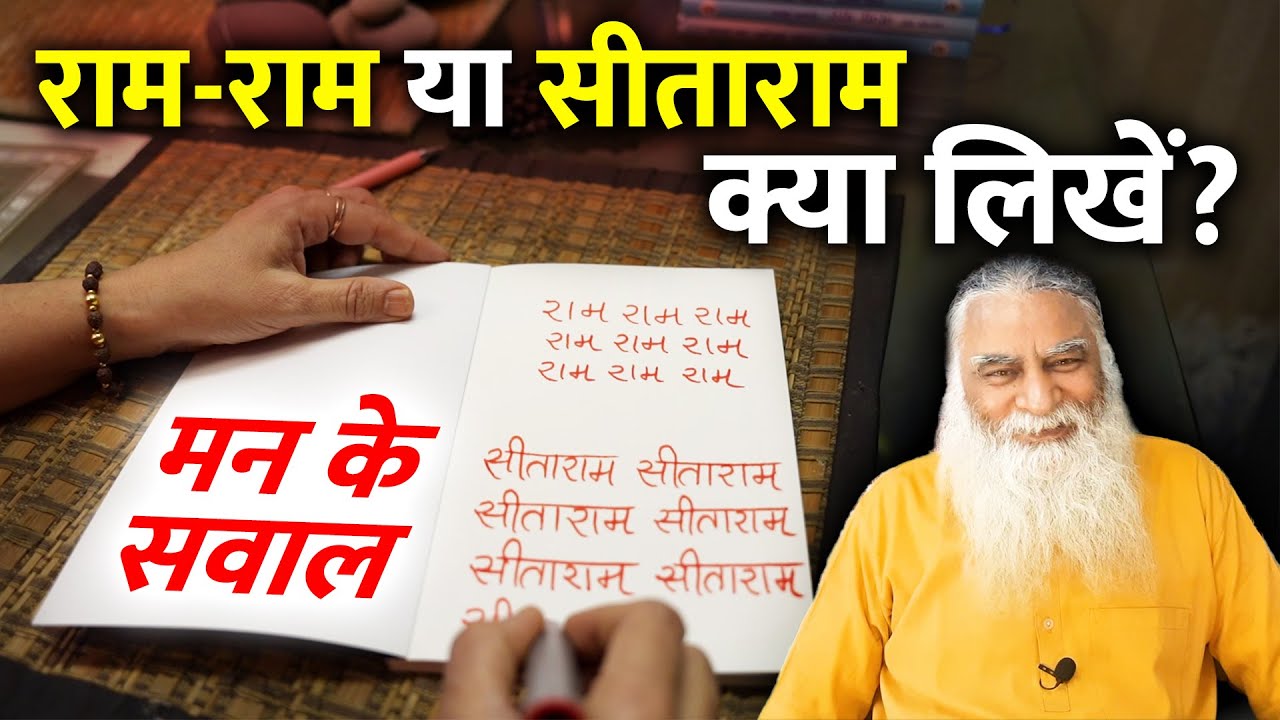 राम-राम या सीताराम
क्या लिखें?
राम राम राम
राम राम राम
राम राम राम
सीताराम सीताराम
सीताराम सीताराम
सीताराम सीताराम
सी
मन के
सवाल